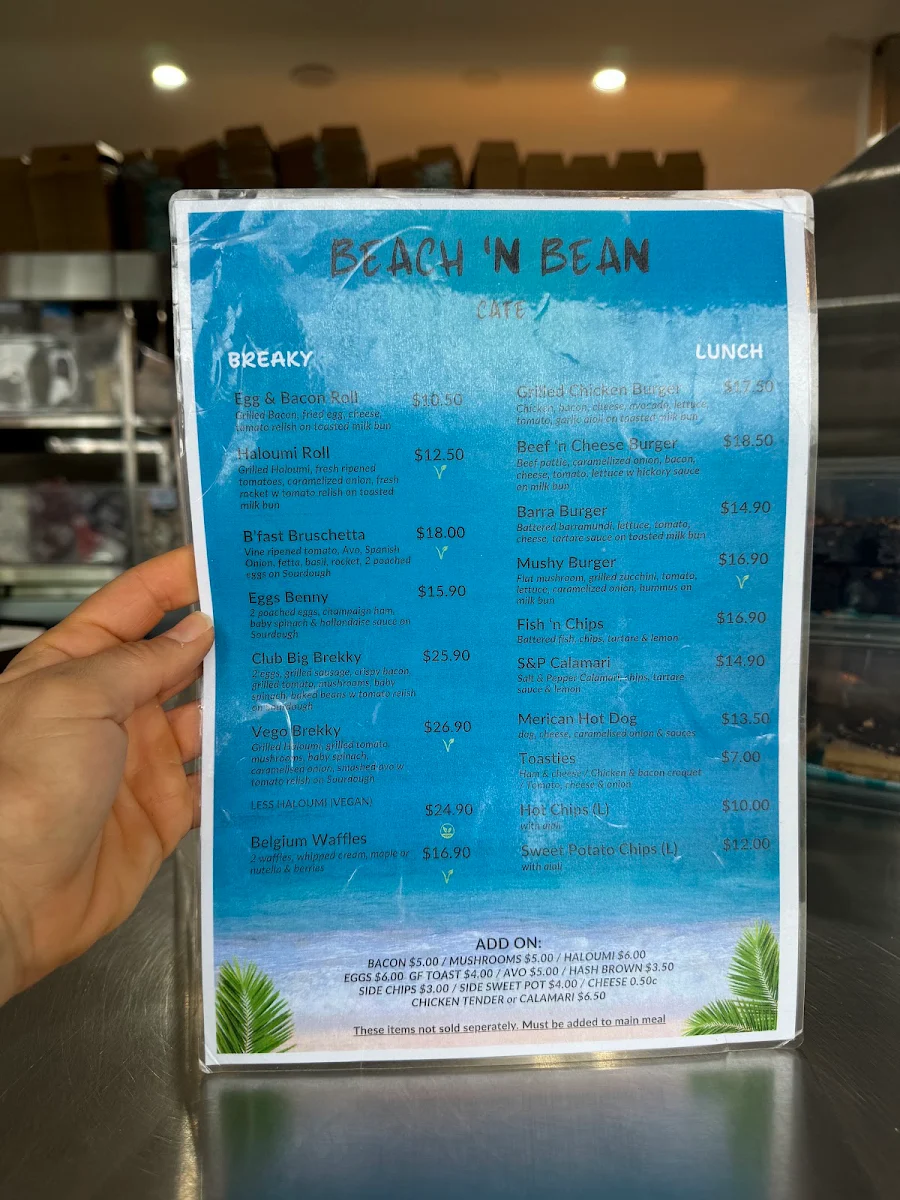 BEACH 'N BEAN
CAFE
BREAKY
Egg & Bacon Roll $10.50
Grilled Bacon, fried egg, cheese,
tomato relish on toasted milk bun
Haloumi Roll $12.50
Grilled Haloumi, fresh ripened
tomatoes, caramelized onion, fresh
rocket w tomato relish on toasted
milk bun
B'fast Bruschetta $18.00
Vine ripened tomato, Avo, Spanish
Onion, fetta, basil, rocket, 2 poached
eggs on Sourdough
Eggs Benny $15.90
2 poached eggs, champaign ham,
baby spinach & hollandaise sauce on
Sourdough
Club Big Brekky $25.90
2 eggs, grilled sausage, crispy bacon,
grilled tomato, mushrooms, baby
spinach, baked beans w tomato relish
on Sourdough
Vego Brekky $26.90
Grilled Haloumi, grilled tomato,
mushrooms, baby spinach,
caramelised onion, smashed avo w
tomato relish on Sourdough
LESS HALOUMI (VEGAN) $24.90
Belgium Waffles $16.90
2 waffles, whipped cream, maple or
nutella & berries
LUNCH
Grilled Chicken Burger $17.50
Chicken, bacon, cheese, avocado, lettuce,
tomato, garlic aioli on toasted milk bun
Beef 'n Cheese Burger $18.50
Beef pattie, caramelized onion, bacon,
cheese, tomato, lettuce w hickory sauce
on milk bun
Barra Burger $14.90
Battered barramundi, lettuce, tomato,
cheese, tartare sauce on toasted milk bun
Mushy Burger $16.90
Flat mushroom, grilled zucchini, tomato,
lettuce, caramelized onion, hummus on
milk bun
Fish 'n Chips $16.90
Battered fish, chips, tartare & lemon
S&P Calamari $14.90
Salt & Pepper Calamari, chips, tartare
sauce & lemon
Merican Hot Dog $13.50
dog, cheese, caramelised onion & sauces
Toasties $7.00
Ham & cheese / Chicken & bacon croquet
/ Tomato, cheese & onion
Hot Chips (L) $10.00
with aioli
Sweet Potato Chips (L) $12.00
with aioli
ADD ON:
BACON $5.00 / MUSHROOMS $5.00 / HALOUMI $6.00
EGGS $6.00 GF TOAST $4.00 / AVO $5.00 / HASH BROWN $3.50
SIDE CHIPS $3.00 / SIDE SWEET POT $4.00 / CHEESE 0.50c
CHICKEN TENDER or CALAMARI $6.50
These items not sold seperately. Must be added to main meal